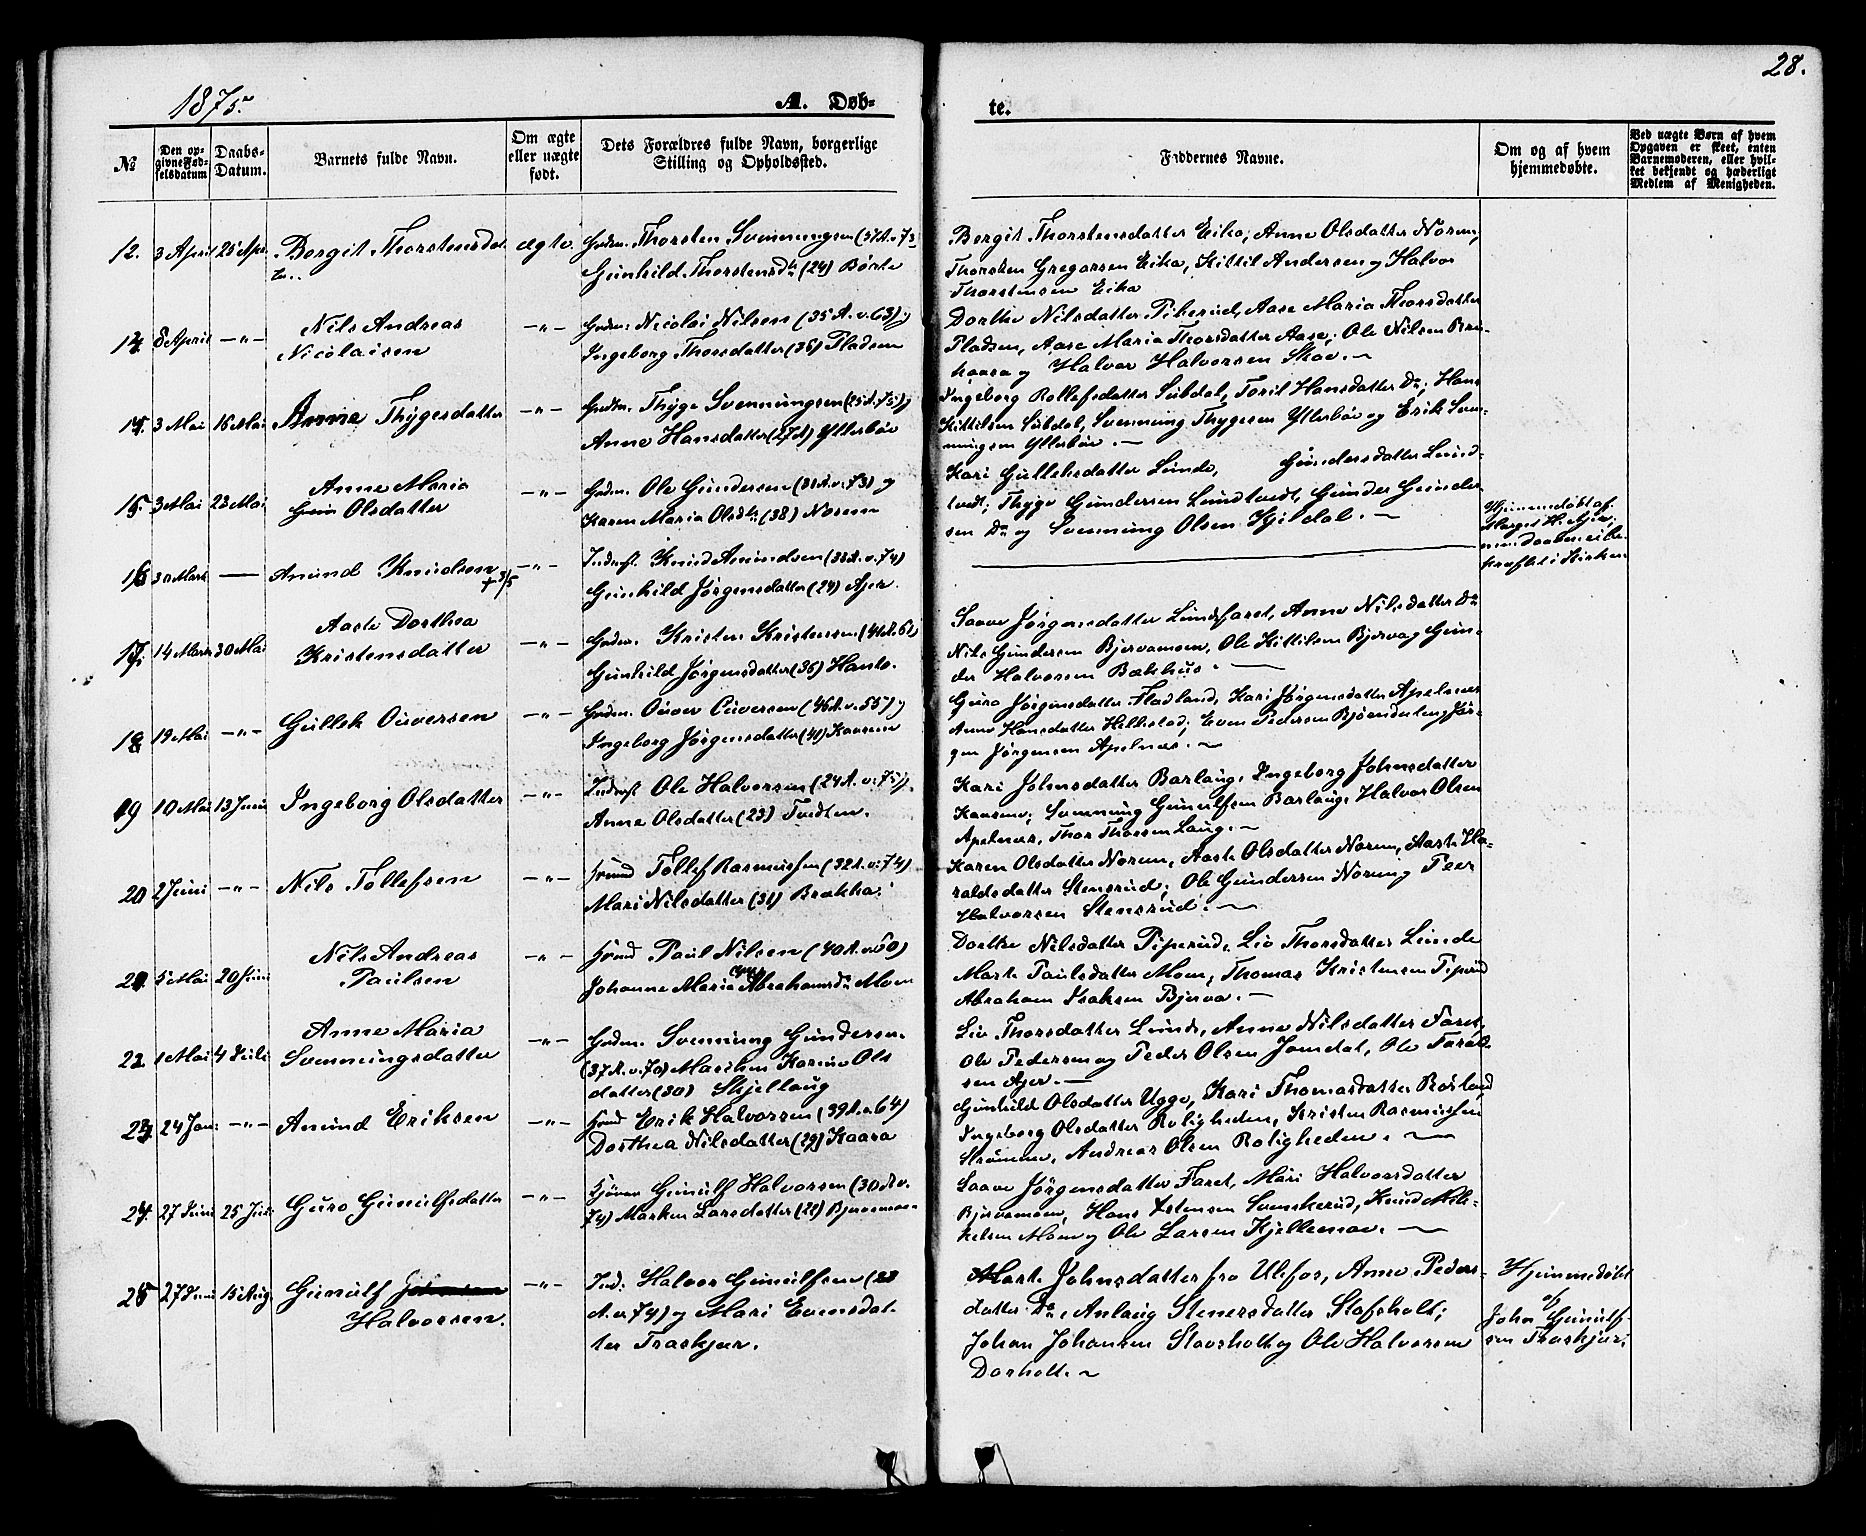 28.
1875.
A. Døb-
te.
№
Den op-
givne Fød-
selsdatum
Daabs-
Datum.
Barnets fulde Navn.
Om ægte
eller uægte
født.
Dets Forældres fulde Navn, borgerlige
Stilling og Opholdssted.
Faddernes Navne.
Om og af hvem
hjemmedøbte.
Ved uægte Børn af hvem
Opgaven er skeet, enten
Barnemoderen, eller hvil-
ket bekjendt og hæderligt
Medlem af Menigheden.
12. 3 April 25 Apr. Bergit Thorstensdat-
ter
ægte
Thorsten Svenningsen (37 A. v. 73
Gunhild Thorstensdtr (24) Børte
Bergit Thorstensdatter Eika, Anne Olsdatter Norem,
Thorsten Gregarsen Eika, Kittil Andersen og Halvor
Thorstensen Eika
8 April —„— Nils Andreas
Nicolaisen
—„—
Nicolai Nilsen (35 A. v. 63) og
Ingeborg Thorsdatter (36) Pladsen
Dorthe Nilsdatter Piperud, Aase Maria Thorsdatter
Pladsen, Aase Maria Thorsdatter Aase, Ole Nilsen
og Halvor Halvorsen Skov. —
3 Mai 16 Mai Anne Thygesdatter
—„—
Thyge Svenningsen (25 A. 75) og
Anne Hansdatter (27 A) Ytterbøe
Ingeborg Rollefsdatter Subdal, Toril Hansdatter Do, Hans
Kittilsen Subdal, Svenning Thygesen Ytterbøe og Erik Sven-
ningsen Ytterbøe. —
15. 3 Mai 23 Mai Anne Maria
Olsdatter
—„—
Ole Gundersen (31 A. v. 73) og
Karen Maria Olsdtr (38) Norem
Kari Gulleksdatter Lunde, Gundersdatter Lund-
tvedt, Thyge Gundersen Lundtvedt, Gunder Gunder-
sen Do og Svenning Olsen Kjildal. —
16 30 Marts — Anund Knudsen
+ 3/5
—„—
Knud Anundsen (32 A. v. 74)
Gunhild Jørgensdatter (24) Ajer
Hjemmedøbt af
17. 14 Marts 30 Mai Aaste Dorthea
Kristensdatter
—„—
Kristen Kristensen (41 A. 62)
Gunhild Jørgensdatter (36) Hanto.
Saave Jørgensdatter Lundsfaret, Anne Nilsdatter Do
Nils Gundersen Bjervamoen, Ole Kittilsen Bjerva og Gun-
der Halvorsen Bakhus. —
18 19 Mai —„— Gullek Ouversen
—„—
Ouver Ouversen (46 A. v. 55) og
Ingeborg Jørgensdatter (41) Kaasene
Guro Jørgensdatter Fladland, Kari Jørgensdatter Apelnæs
Anne Hansdatter Hellestad, Even Pedersen Bjøendalen, Jør-
gen Jørgensen Apelnæs. —
19 10 Mai 13 Juni Ingeborg Olsdatter
—„—
Ole Halvorsen (24 A. v. 75),
Anne Olsdatter (23) Tvedten.
Kari Johnsdatter Barlaug, Ingeborg Johnsdatter
Kaasene, Svenning Gunulfsen Barlaug, Halvor Olsen
Apelnæs, Thor Thorsen Laug. —
20 2 Juni —„— Nils Tollefsen
—„—
Tollef Rasmussen (32 A. v. 74)
Mari Nilsdatter (31) Brækka.
Karen Olsdatter Norem, Aaste Olsdatter Norem, Aaste Ha-
raldsdatter Stensrud, Ole Gundersen Norem og Peer
Halvorsen Stensrud. —
21. 5 Mai 20 Juni Nils Andreas
Paulsen
—„—
Paul Nilsen (40 A. v. 60)
Johanne Maria Abrahamsdtr Moen
Dorthe Nilsdatter Piperud, Liv Thorsdatter Lunde
Marte Paulsdatter Moen, Thomas Kristensen Piperud
Abraham Isaksen Bjerva. —
22. 1 Mai 4 Juli Anne Maria
Svenningsdatter
—„—
Svenning Gundersen
(37 A. v. 70) Maschen Karine Ols
datter (30) Skjellaug
Liv Thorsdatter Lunde, Anne Nilsdatter Faret,
Ole Pedersen og Peder Olsen Jomdal, Ole
sen Ajer. —
23. 24 Jan: —„— Anund Eriksen
—„—
Erik Halvorsen (39 A. v. 64)
Dorthea Nilsdatter (29) Kaasa
Gunhild Olsdatter Ugge, Kari Thomasdatter
Ingeborg Olsdatter Roligheden, Kristen Rasmussen
Strømme, Andreas Olsen Roligheden. —
24. 27 Juni 25 Juli Guro Gunulfsdatter
—„—
Gunulf Halvorsen (30 A. v.
74) Marken Larsdatter (21) Bjervamoen
Saave Jørgensdatter Faret, Mari Halvorsdatter
Bjervamoen, Hans Svenskerud, Knud Mik-
kelsen Moen og Ole Larsen Kjellemoe. —
25 27 Juni 15 Aug. Gunulf
Halvorsen.
—„—
Ind: Halvor Gunulfsen (28
A. v. 74) og Mari Evensdat-
ter Traskjær.
Marte Johnsdatter fra Ulefos, Anne Peders-
datter Do, Anlaug Stenersdatter Stafsholt;
Johan Johansen Stavsholt og Ole Halvorsen
Dorholt. —
Hjemmedøbt
af
John Gunulf-
sen Traskjær.